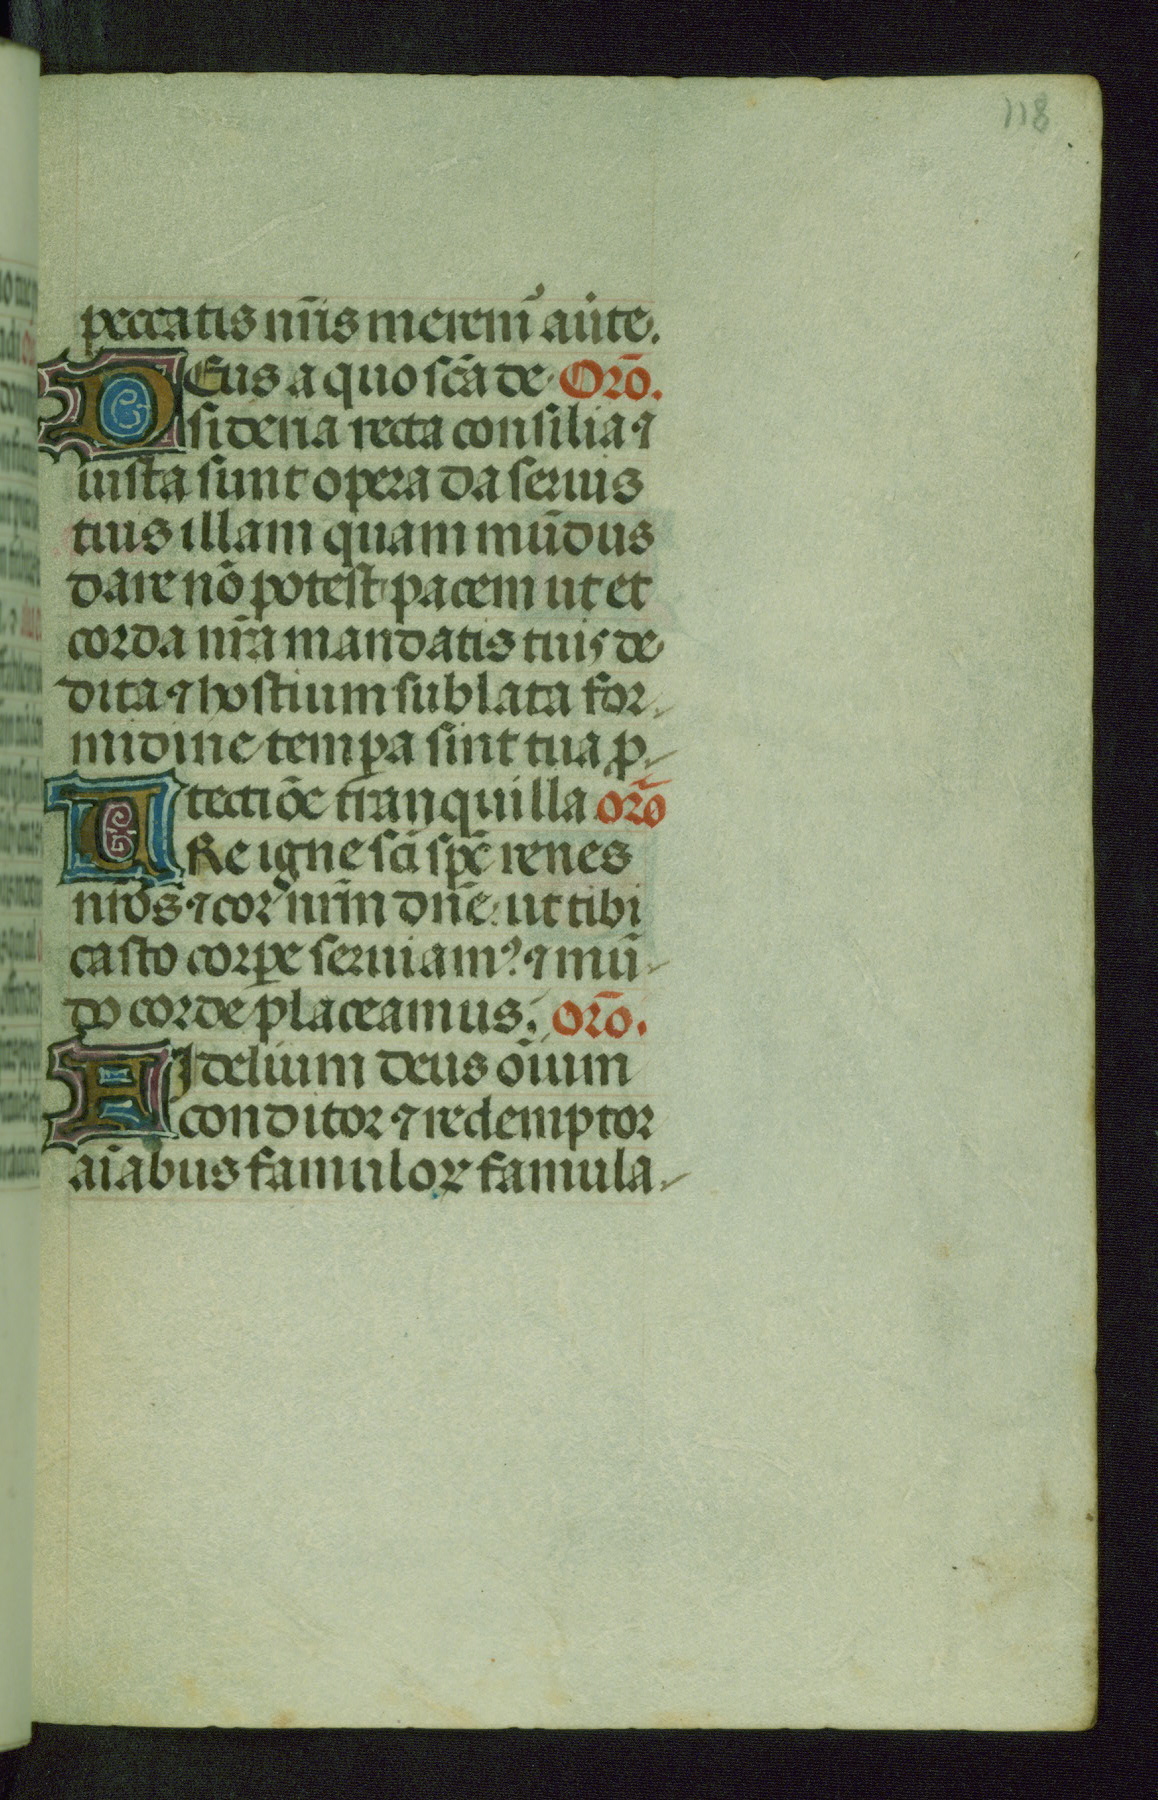 118
peccatis nr̄is meremr̉ au̇te.
DEus a quo sc̄a de Orō.
sideria recta consilia ⁊
iusta sunt opera da seruis
tuis illam quam mūdus
dare nō potest pacem ut et
corda nr̄a mandatis tuis de
dita ⁊ hostium sublata for-
midine tempa sint tua ꝓ-
tectiōe tranquilla orō
URe igne sc̄i sp̄c renes
nr̄os ⁊ cor nr̄m dn̄e ut tibi
casto corꝑe seruiam⁹. ⁊ mū-
do corde placeamus. orō.
FIdelium deus oīum
conditor ⁊ redemptor
aīabus famuloꝝ famula-